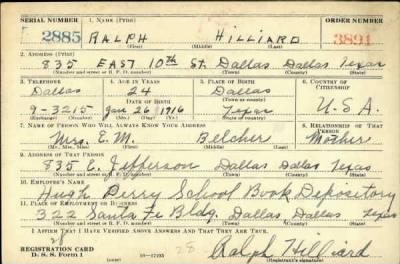 SERIAL NUMBER 1. NAME (Print) ORDER NUMBER
2885 RALPH HILLIARD 3891
(First) (Middle) (Last)
2. ADDRESS (Print)
835 EAST 10th St. Dallas Dallas Texas
(Number and street or R. F. D. number) (Town) (County) (State)
3. TELEPHONE 4. AGE IN YEARS 5. PLACE OF BIRTH 6. COUNTRY OF CITIZENSHIP
Dallas 24 Dallas
DATE OF BIRTH (Town or county)
9-3215 Jan 26 1916 Texas U.S.A.
(Exchange) (Number) (Mo.) (Day) (Yr.) (State or country)
7. NAME OF PERSON WHO WILL ALWAYS KNOW YOUR ADDRESS 8. RELATIONSHIP OF THAT PERSON
Mrs. E. M. Belcher Mother
(Mr., Mrs., Miss) (First) (Middle) (Last)
9. ADDRESS OF THAT PERSON
835 E. Jefferson Dallas Dallas Texas
(Number and street or R. F. D. number) (Town) (County) (State)
10. EMPLOYER'S NAME
Hugh Perry School Book Depository
11. PLACE OF EMPLOYMENT OR BUSINESS
322 Santa Fe Bldg. Dallas Dallas Texas
(Number and street or R. F. D. number) (Town) (County) (State)
I AFFIRM THAT I HAVE VERIFIED ABOVE ANSWERS AND THAT THEY ARE TRUE.
REGISTRATION CARD
D. S. S. Form 1 (over) 16—17105 28 Ralph Hilliard
(Registrant's signature)